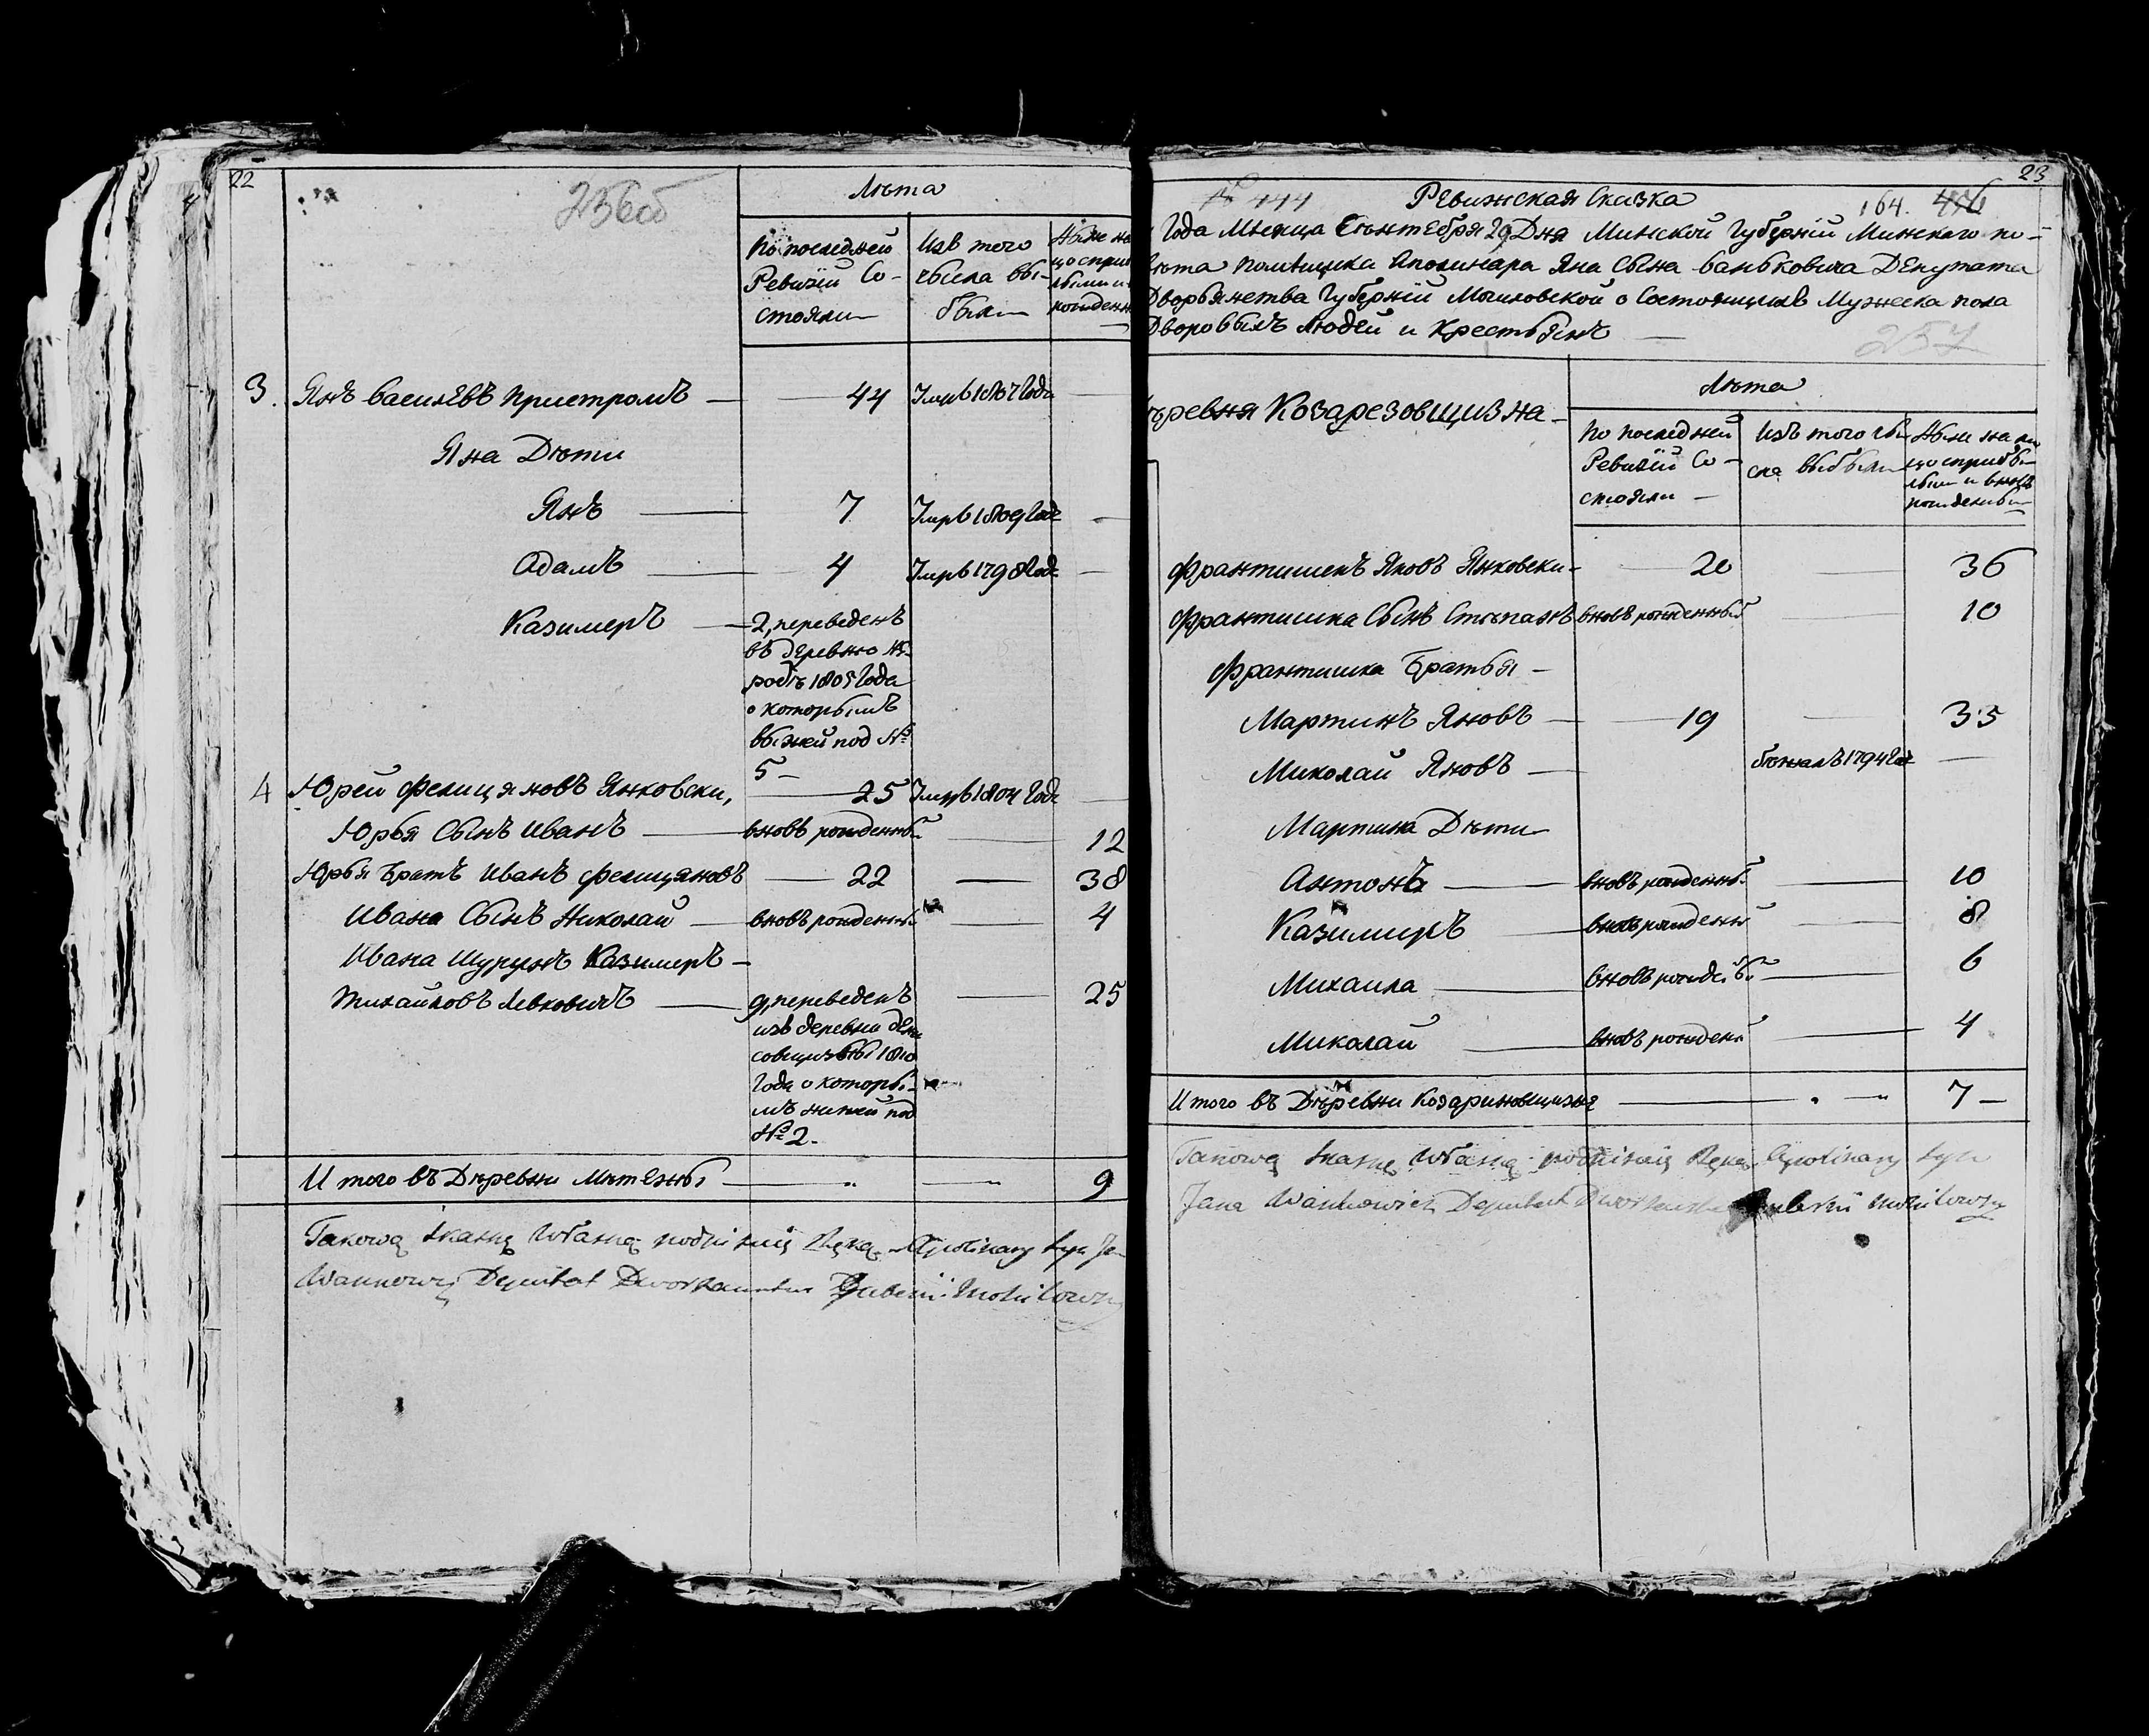 22
256об
Лѣта
По последней
Ревизіи Со-
стояли
Изъ того
числа вы-
были
3. Янъ Васильевъ Пристромъ — 44 Умръ 1807 Года —
Яна Дѣти
Янъ — 7 Умръ 1809 Года —
Адамъ — 4 Умръ 1798 Года —
Казимеръ — 2, переведенъ
въ деревню
1805 Года
о которымъ
выжей под №
5 —
4 Юрей Фелиціяновъ Янковски, — 25 Умръ 1804 Года —
Юрья Сынъ Иванъ — вновь рожденный — 12
Юрья Братъ Иванъ Фелиціяновъ — 22 — 38
Ивана Сынъ Николай — вновь рожденный — 4
Ивана Шурунъ Казимеръ —
Михайловъ Левковичъ — 9, переведенъ — 25
изъ деревни
1810
Года о которы-
мъ нижей под
№ 2.
И того въ Дѣревни Мѣтежы — „ — „ 9
Takową skaskę własną podpisuię Ręką Apolinary syn
Wankowicz Deputat Dworzanstwa Gubernii Mohilowsz
23
№ 444 Ревижская Сказка 164. 416
Года Мѣсяца Сѣнтебря 29 Дня Минской Губерніи Минскаго по-
вѣта Помѣщика Аполинара Яна Сына Ваньковича Депутата
Дворьянства Губерніи Могиловской о Состоящихъ Мужеска пола
Дворовыхъ Людей и Крестьянъ —
257
Дѣревня Козарезовщизна —
Лѣта
По последней
Ревизіи Со-
стояли —
Изъ того чи-
сла выбыли
Ныне на ли-
цо с прибы-
лыми и вновь
рожденны
Франтишекъ Яновъ Янковски — 20 — 36
Франтишка Сынъ Стѣпанъ вновь рожденный — 10
Франтишка Братья —
Мартинъ Яновъ — 19 — 35
Миколай Яновъ — бѣжалъ 1794 Года —
Мартина Дѣти
Антонъ — вновь рожденный — 10
Казимиръ — вновь рожденый — 8
Михаила — вновь рожденый — 6
Миколай — вновь рожденый — 4
И того въ Дѣревни Козариновщизне — „ — „ 7 —
Takową skaskę własną podpisuię Ręką Apolinary syn
Jana Wankowicz Deputat Dworzanstwa Gubernii Mohilowsz